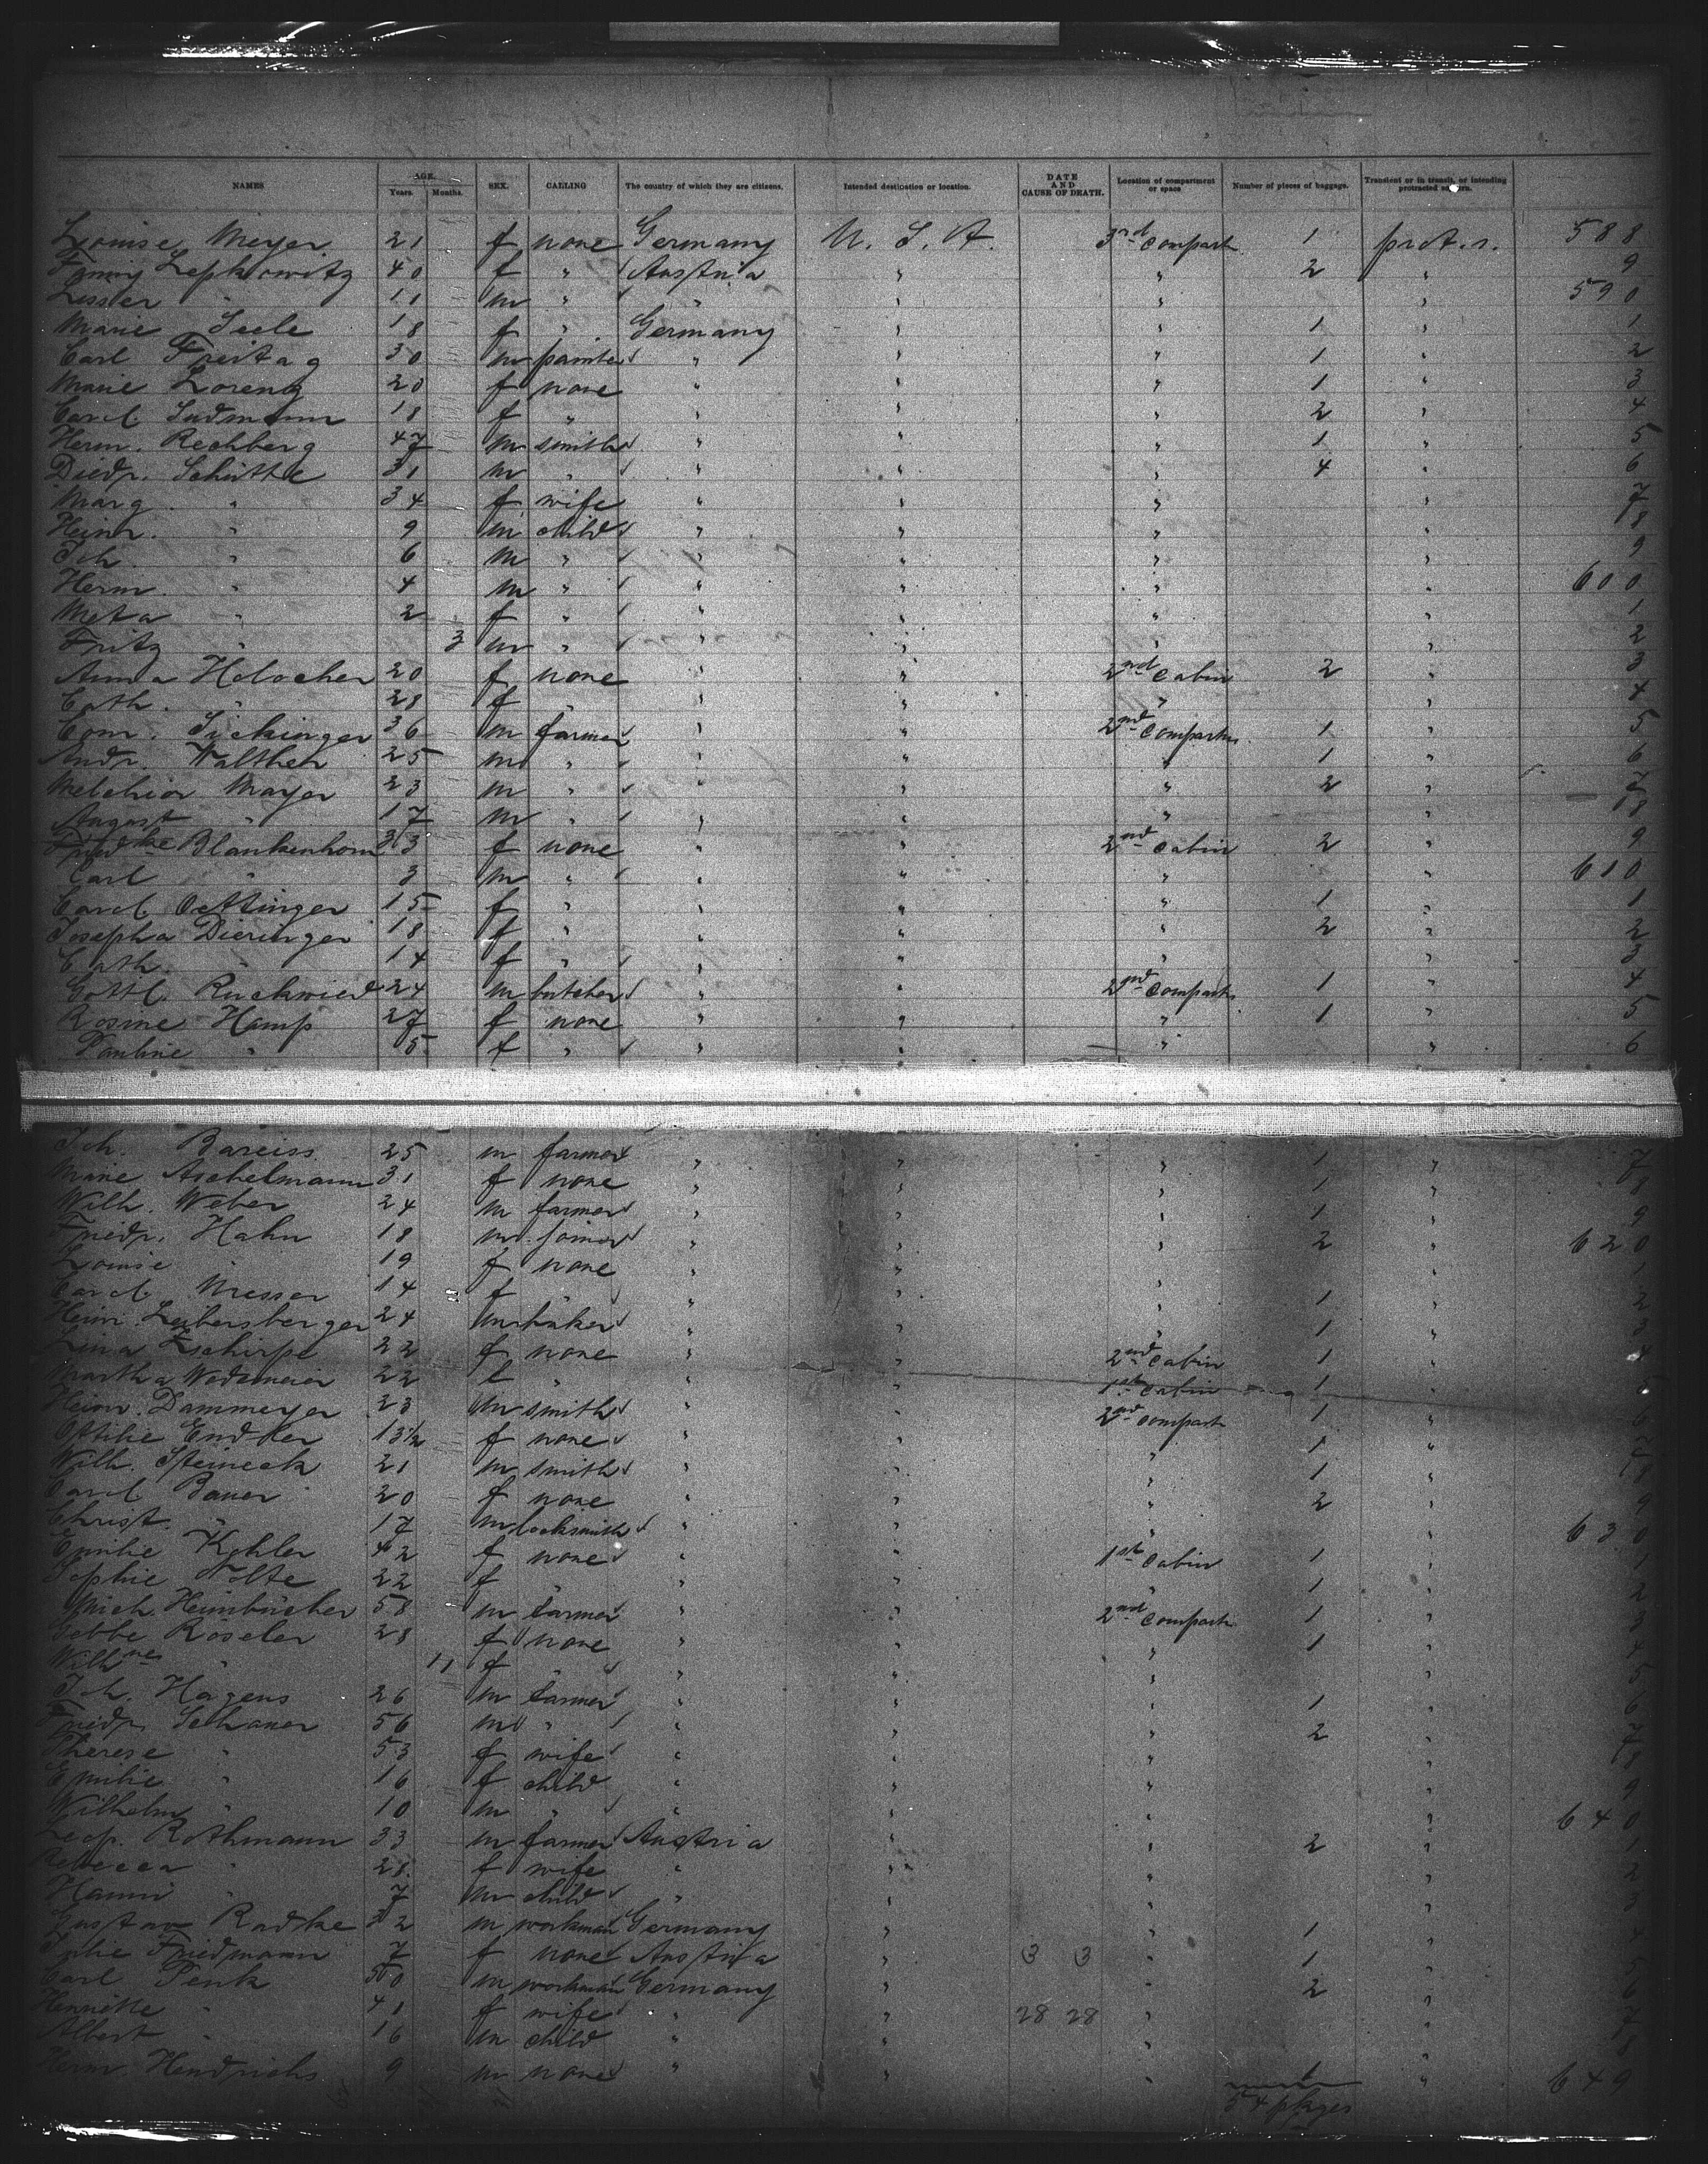 NAMES AGE. Years. Months. SEX. CALLING The country of which they are citizens. Intended destination or location. DATE AND CAUSE OF DEATH. Location of compartment or space Number of pieces of baggage. Transient or in transit, or intending protracted sojourn.
Louise Meyer 21 f none Germany U. S. A. 3rd compart. 1 prot. s. 588
Fanny Lepkowitz 40 f " Austria " " 2 " 9
Lesser " 11 m " " " " " 590
Marie Seele 18 f " Germany " " 1 " 1
Carl Freitag 30 m painter " " " 1 " 2
Marie Lorenz 20 f none " " " 1 " 3
Carol. Sudmann 18 f " " " " 2 " 4
Herm. Rechberg 47 m smith " " " 1 " 5
Diedr. Schütte 31 m " " " " 4 " 6
Marg. " 34 f wife " " " " 7
Heinr. " 9 m child " " " " 8
Joh. " 6 m " " " " " 9
Herm. " 4 m " " " " " 600
Meta " 2 f " " " " " 1
Fritz " 3 m " " " " " 2
Anna Holocher 20 f none " " 2nd cabin 2 " 3
Cath. " 28 f " " " " " 4
Conr. Sickinger 36 m farmer " " 2nd compart. 1 " 5
Andr. Walther 25 m " " " " 1 " 6
Melchior Mayer 23 m " " " " 2 " 7
August " 17 m " " " " " 8
Friedke Blankenhorn 33 f none " " 2nd cabin 2 " 9
Carl " 3 m " " " " " 610
Carol. Oettinger 15 f " " " " 1 " 1
Josepha Dieringer 18 f " " " " 2 " 2
Cath. " 14 f " " " " " 3
Gottl. Rückwied 24 m butcher " " 2nd compart. 1 " 4
Rosine Hamp 27 f none " " " 1 " 5
Pauline " 5 f " " " " " 6
Joh. Bareiss 25 m farmer " " " 1 " 7
Marie Aschelmann 31 f none " " " 1 " 8
Wilh. Weber 24 m farmer " " " 1 " 9
Friedr. Hahn 18 m joiner " " " 2 " 620
Louise " 19 f none " " " " 1
Carol. Messer 14 f " " " " 1 " 2
Heinr. Leibersberger 24 m baker " " " 1 " 3
Lina Zschirpe 22 f none " " 2nd cabin 1 " 4
Martha Wedemeier 22 f " " " 1st cabin 1 " 5
Heinr. Dammeyer 23 m smith " " 2nd compart 1 " 6
Ottilie Endker 13½ f none " " " 1 " 7
Wilh. Steineck 21 m smith " " " 1 " 8
Carol. Bauer 20 f none " " " 2 " 9
Christ. " 17 m locksmith " " " " 630
Emilie Kohler 42 f none " " 1st cabin 1 " 1
Sophie Nolte 22 f " " " " 1 " 2
Mich. Heimbücher 58 m farmer " " 2nd compart. 1 " 3
Gebbe Röseler 28 f none " " " 1 " 4
Wilhne " 11 f " " " " " 5
Joh. Hagens 26 m farmer " " " 1 " 6
Friedr. Schauer 56 m " " " " 2 " 7
Therese " 53 f wife " " " " 8
Emilie " 16 f child " " " " 9
Wilhelm " 10 m " " " " " 640
Leop. Rothmann 33 m farmer Austria " " 2 " 1
Rebecca " 28 f wife " " " " 2
Hanni " 7 m child " " " " 3
Gustav Radke 32 m workman Germany " " 1 " 4
Julie Friedmann 7 f none Austria " 3 3 " 1 " 5
Carl Penk 50 m workman Germany " " 2 " 6
Henriette " 41 f wife " " 28 28 " " 7
Albert " 16 m child " " " " 8
Herm. Hendrichs 9 m none " " " 1 " 649
54 pkges